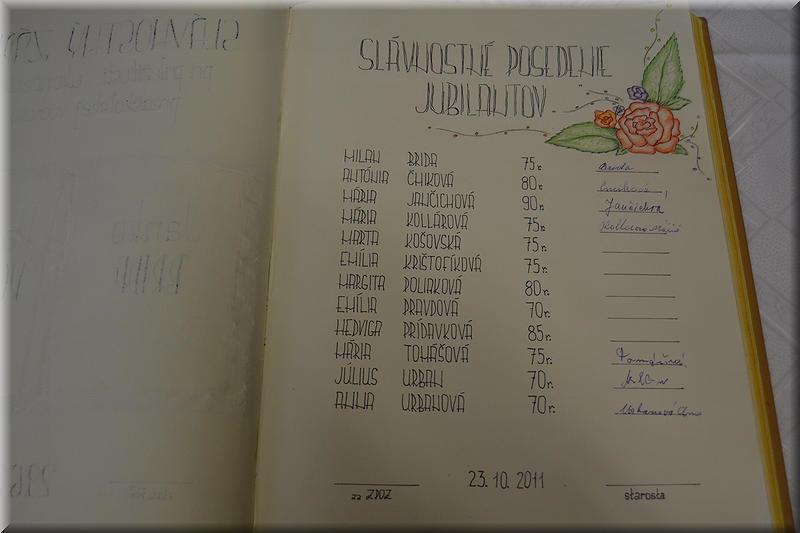 SLÁVNOSTNÉ POSEDENIE
JUBILANTOV
MILAN BRIDA 75 r. Brida
ANTÓNIA ČNIKOVÁ 80 r.
MÁRIA JANČICHOVÁ 90 r.
MÁRIA KOLLÁROVÁ 75 r. Kollárová Mária
MARTA KOŠOVSKÁ 75 r.
EMÍLIA KRIŠTOFÍKOVÁ 75 r.
MARGITA POLIAKOVÁ 80 r.
EMÍLIA PRAVDOVÁ 70 r.
HEDVIGA PRÍDAVKOVÁ 85 r.
MÁRIA TOMÁŠOVÁ 75 r. Tomášová
JÚLIUS URBAN 70 r.
ANNA URBANOVÁ 70 r. Urbanová Anna
23. 10. 2011
za ZPOZ starosta